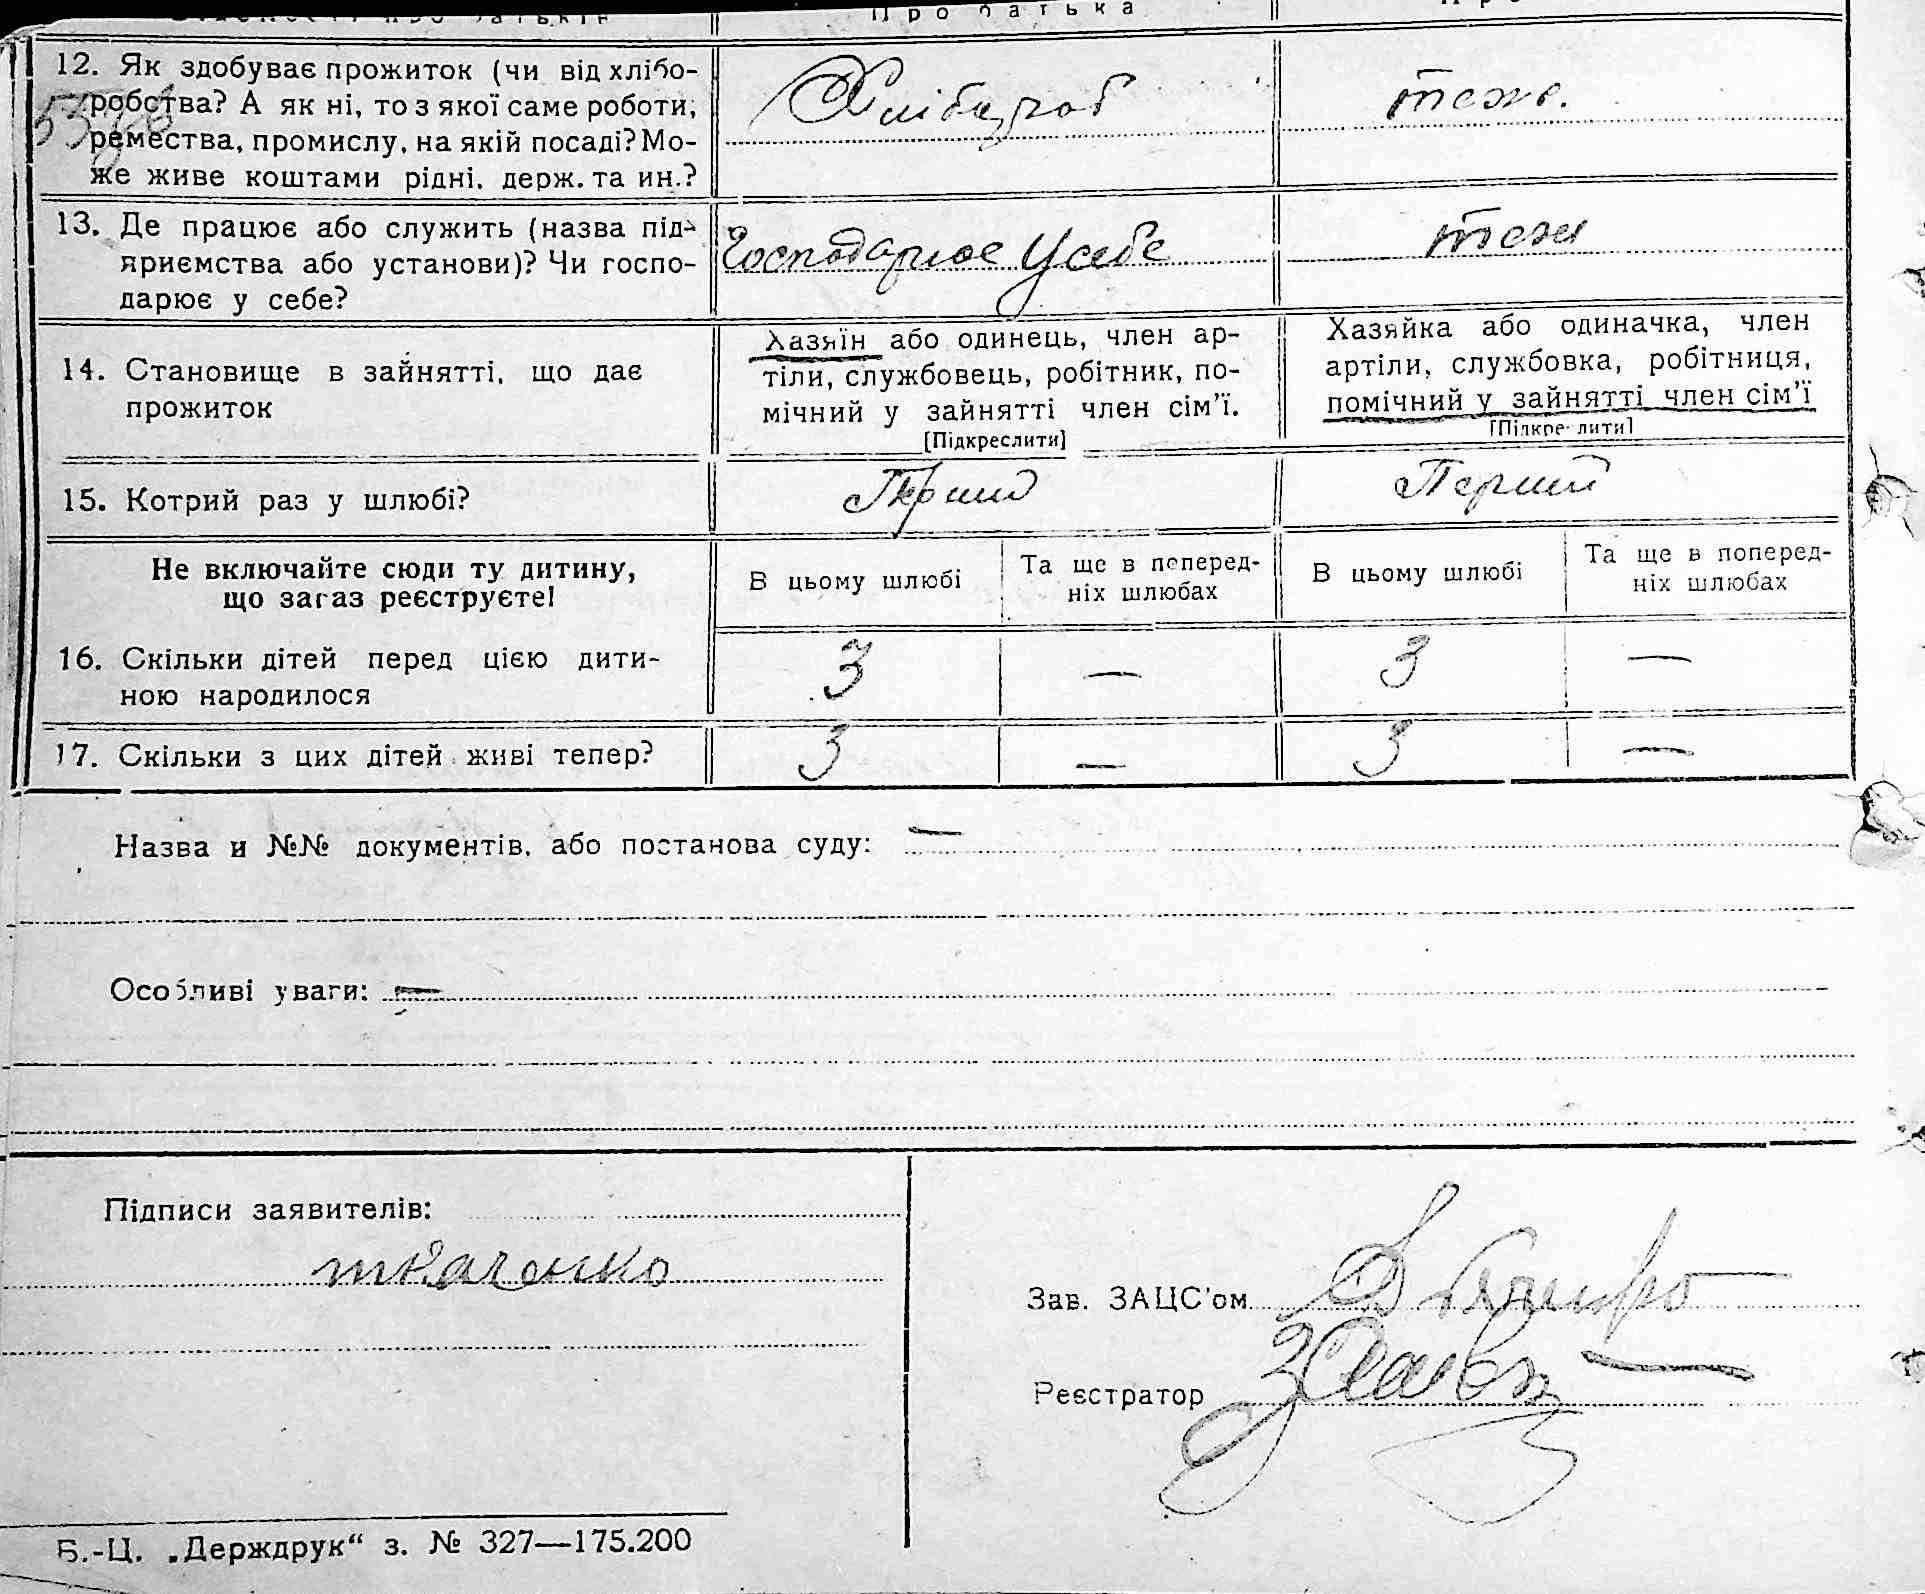 Про батька
12. Як здобуває прожиток (чи від хлібо-
робства? А як ні, то з якої саме роботи,
ремества, промислу, на якій посаді? Мо-
же живе коштами рідні. держ. та ин.?
Хлібороб
теж.
13. Де працює або служить (назва під-
яриємства або установи)? Чи госпо-
дарює у себе?
Господарює У себе
теж
14. Становище в зайнятті, що дає
прожиток
Хазяїн або одинець, член ар-
тіли, службовець, робітник, по-
мічний у зайнятті член сім'ї.
[Підкреслити]
Хазяйка або одиначка, член
артіли, службовка, робітниця,
помічний у зайнятті член сім'ї
[Підкреслити]
15. Котрий раз у шлюбі?
Перший
Перший
Не включайте сюди ту дитину,
що загаз реєструєте!
В цьому шлюбі
Та ще в поперед-
ніх шлюбах
В цьому шлюбі
Та ще в поперед-
ніх шлюбах
16. Скільки дітей перед цією дити-
ною народилося
3 — 3 —
17. Скільки з цих дітей живі тепер?
3 — 3 —
Назва и №№ документів, або постанова суду: —
Особливі уваги: —
Підписи заявителів:
ткаченко
Зав. ЗАЦС'ом
Реєстратор
Б.-Ц. „Держдрук“ з. № 327—175.200